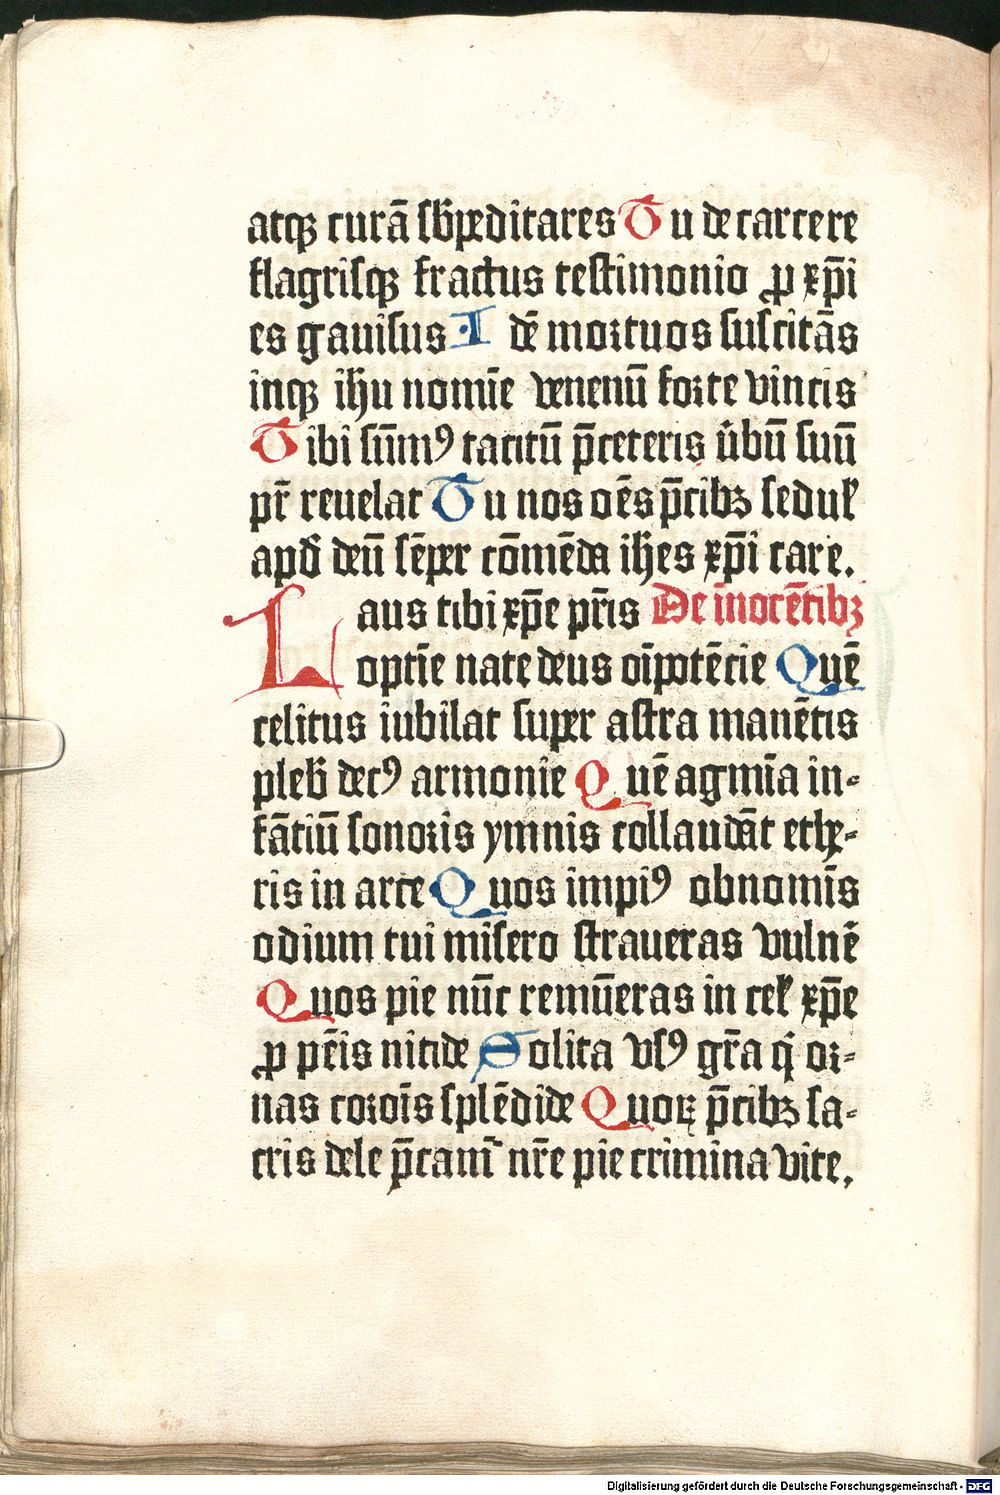 atqꝫ curā sb̄peditares Tu de carcere
flagrisqꝫ fractus testimonio ꝓ xp̄i
es gauisus · I dē mortuos suscitās
inqꝫ ihu nomīe venenū forte vincis
Tibi sūmꝯ tacitū p̄ceteris v̄bū suū
pr̄ reuelat Tu nos oēs p̄cibꝫ sedul
apd̄ deū sēper cōmēda ihes xp̄i care.
Laus tibi xp̄e pr̄is De īnocētibꝫ
optīe nate deus oīpotēcie Quē
celitus iubilat super astra manētis
pleb̄ decꝯ armonie Quē agmīa in-
fātiū sonoris ymnis collaudāt ethe-
ris in arce Quos impiꝯ obnomīs
odium tui misero straueras vulnē
Quos pie nūc remūeras in cel xp̄e
ꝓ pēis nitide Solita vsꝯ gr̄a q̄ or-
nas coroīs splēdide Quoꝝ p̄cibꝫ sa-
cris dele p̄camᷣ nr̄e pie crimina vite.
Digitalisierung gefördert durch die Deutsche Forschungsgemeinschaft - DFG